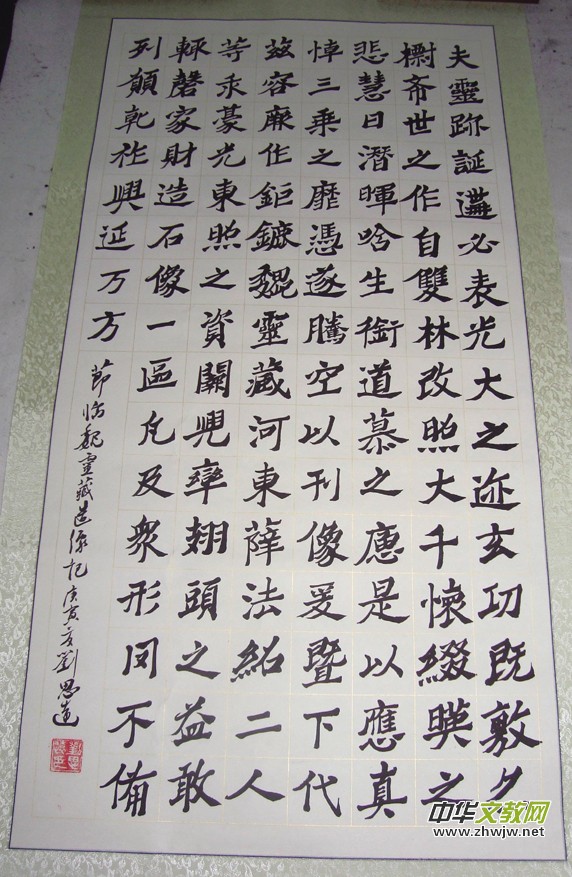 夫靈跡誕遘必表光大之迹玄功既敷亦
標希世之作自雙林改照大千懷綴暎之
悲慧日潛暉唅生銜道慕之應是以應真
悼三乘之靡憑遂騰空以刊像爰暨下代
茲容廓作鉅鏕魏靈藏河東薛法紹二人
等求豪光東照之資闕兜率翅頭之益敢
輒磬家財造石像一區凡及眾形罔不備
列願乾祚興延万方
節臨魏靈藏造像記庚寅夏劉思遠
中华文教网
www.zhwjw.net